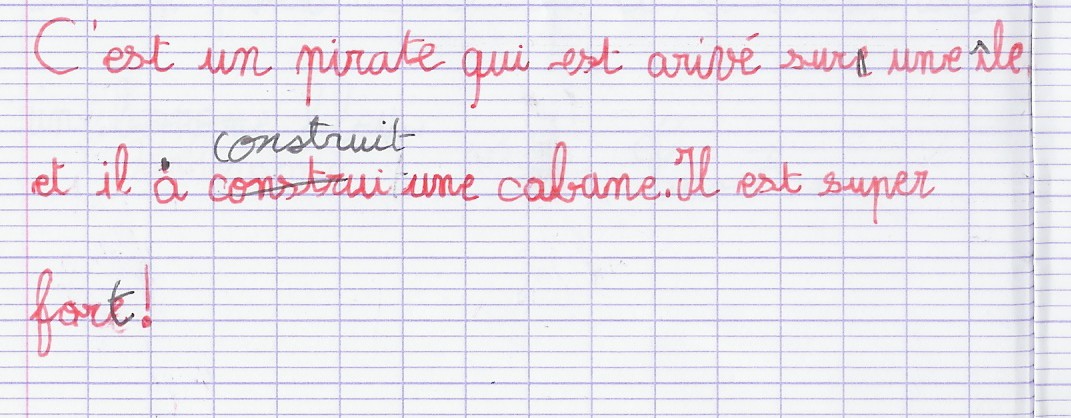 C'est un pirate qui est arivé sur une île
construit
et il à construi une cabane. Il est super
fort !